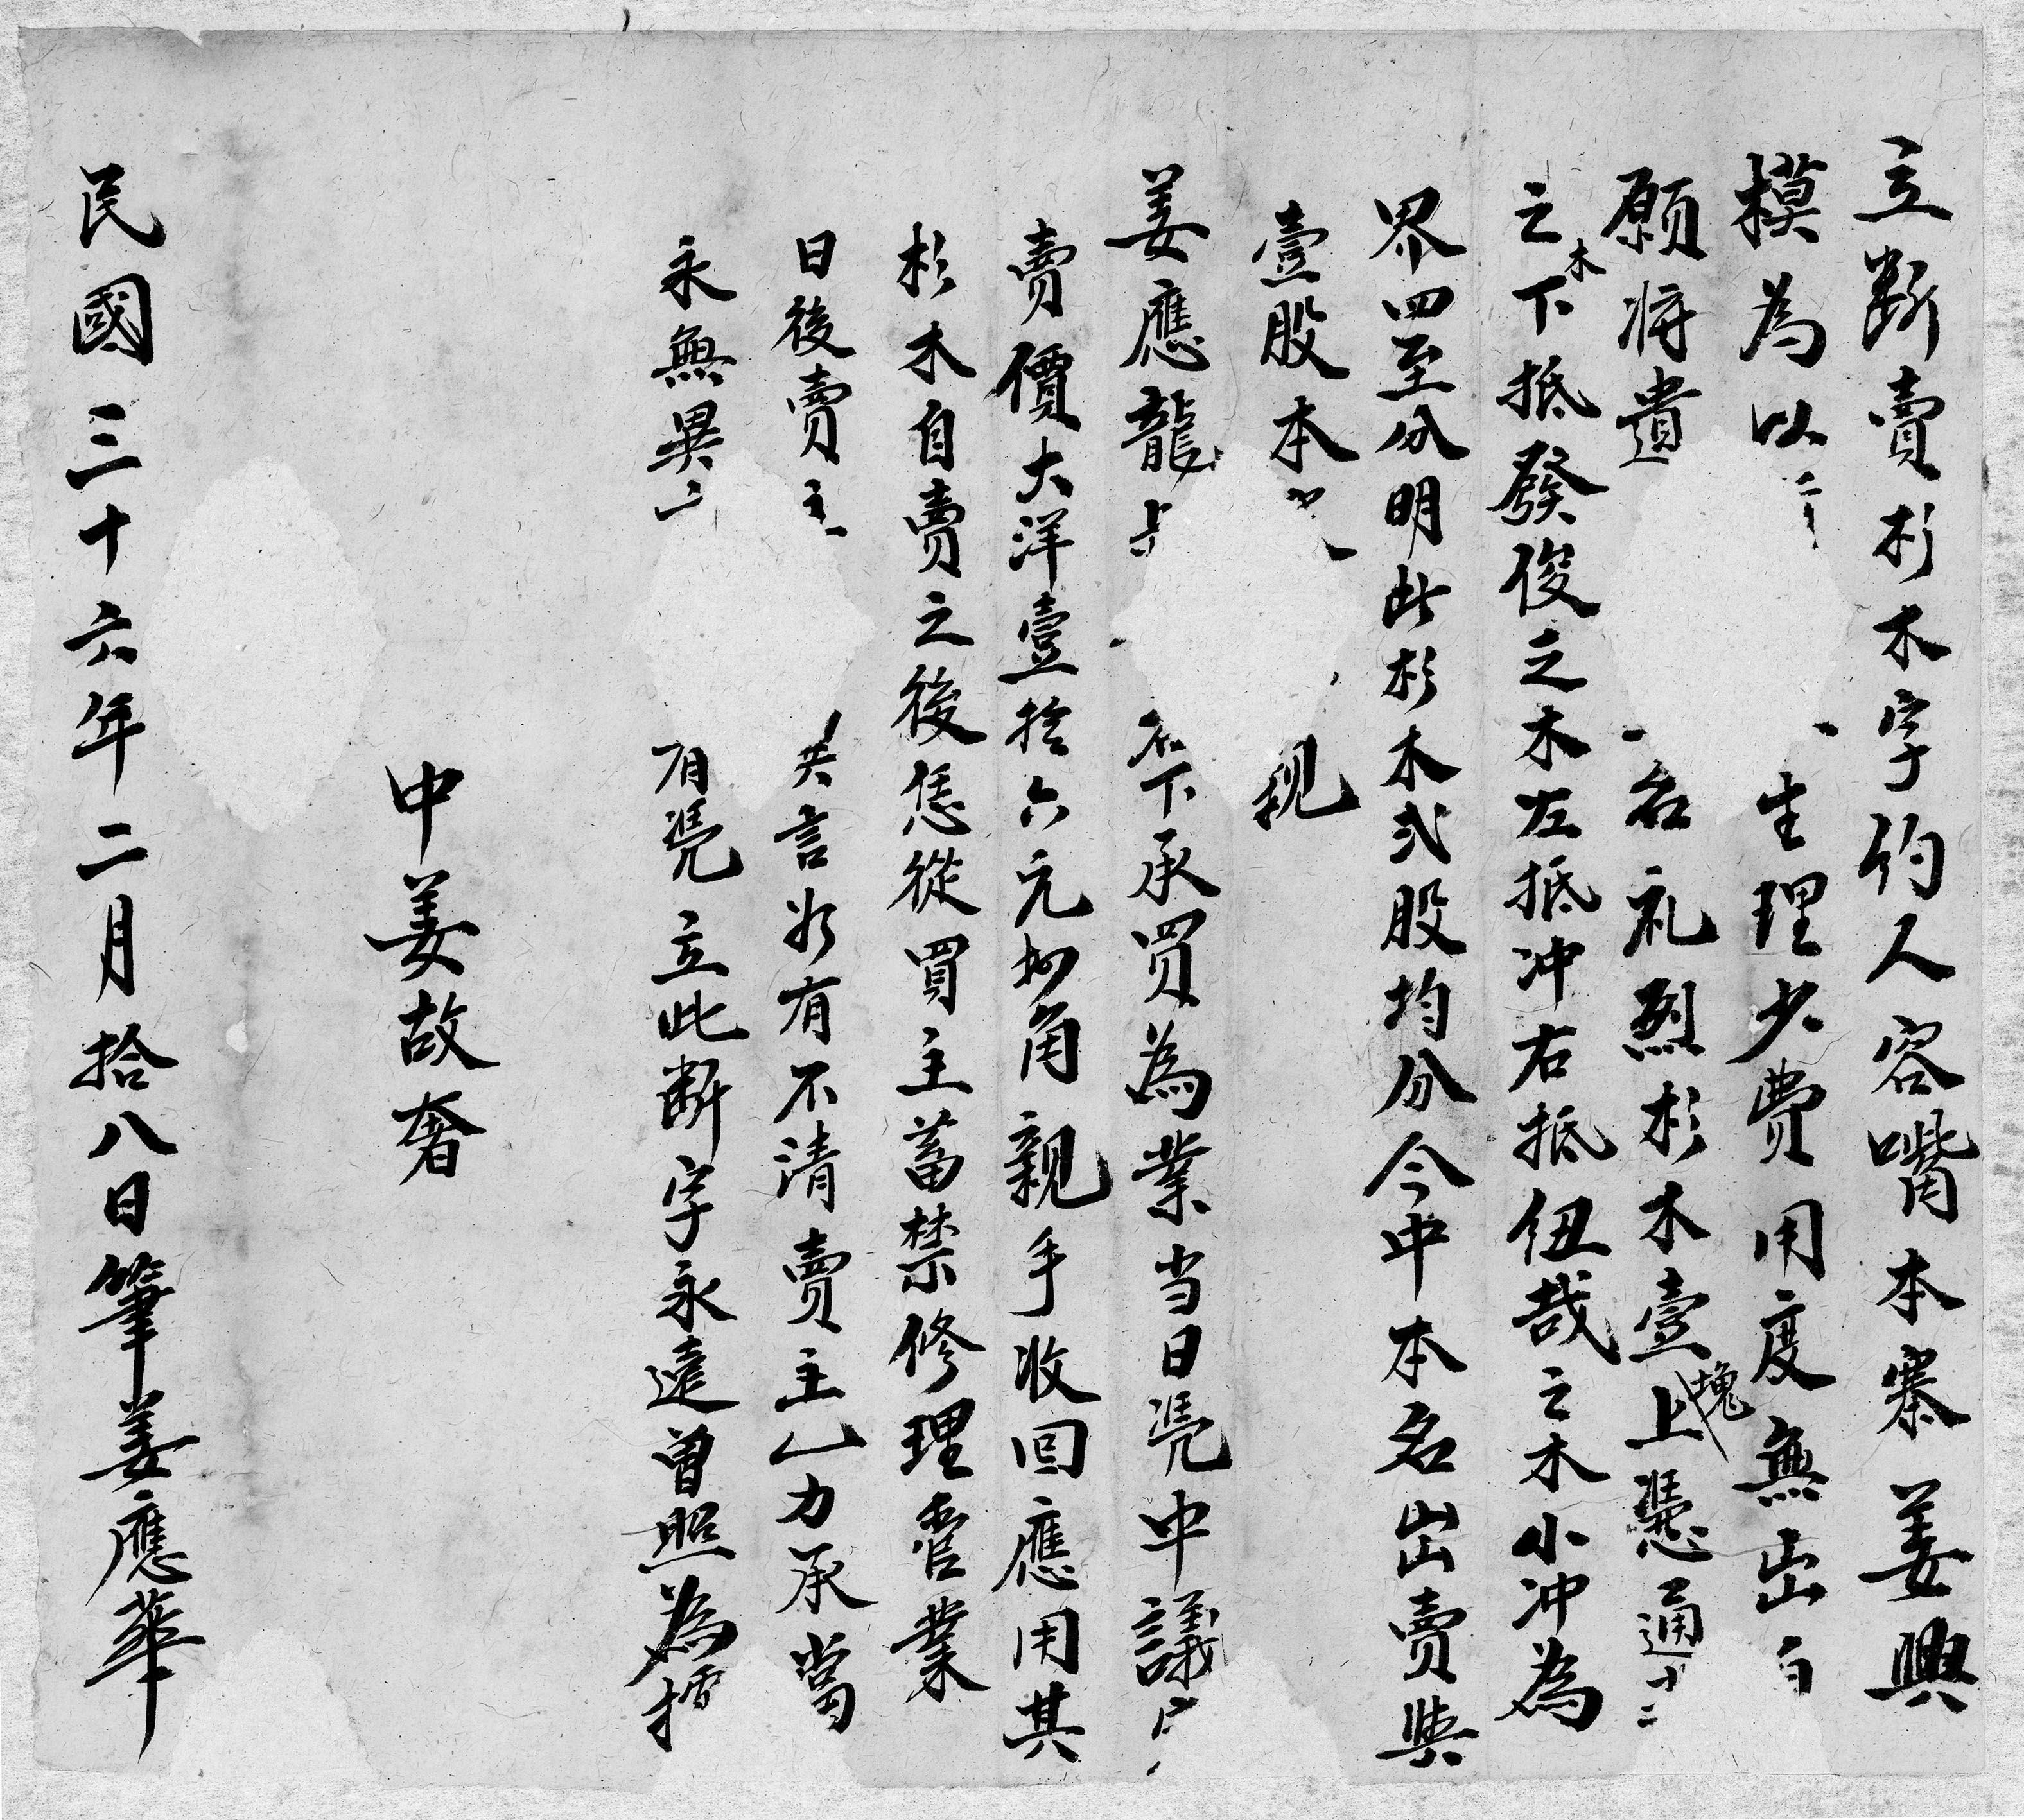 立斷賣杉木字約人容嘴本寨姜興
模為以生理少費用度無出自
願將遺名礼烈杉木壹塊上憑通
之木下抵發俊之木左抵冲右抵伹哉之木小冲為
界四至分明此杉木弍股均分今中本名出賣與
壹股本親
姜應龍下承買為業当日凴中議
賣價大洋壹拾六元角親手收回應用其
杉木自賣之後恁從買主蓄禁修理管業
日後賣主言如有不清賣主乙力承當
永無異有凴立此断字永遠曾照為據
中姜故奢
民國三十六年二月拾八日筆姜應華